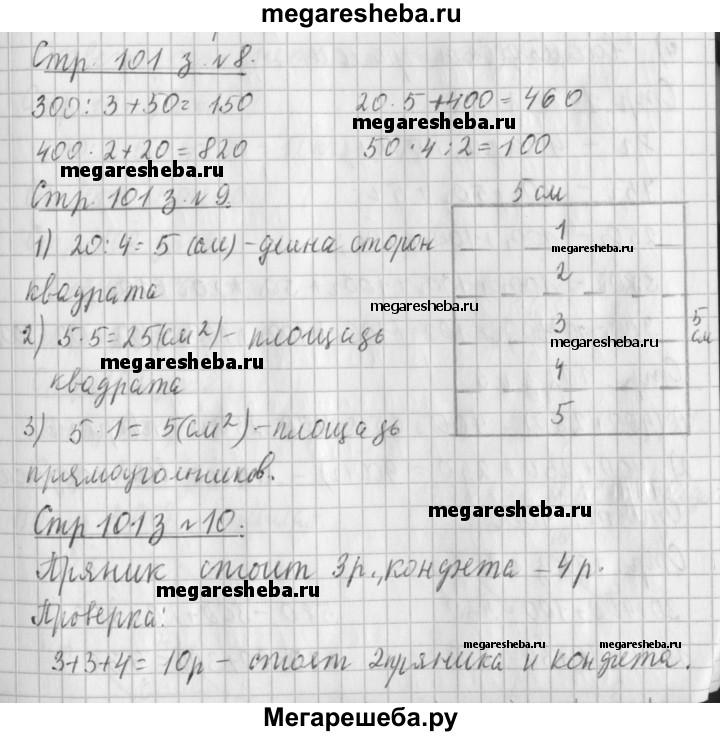 megaresheba.ru
Стр. 101 з. №8.
300 : 3 + 50 = 150
20 · 5 + 400 = 460
megaresheba.ru
400 · 2 + 20 = 820
50 · 4 : 2 = 100
megaresheba.ru
Стр. 101 з. №9.
5 см
1
megaresheba.ru
2
3
megaresheba.ru
4
5
5 см
1) 20 : 4 = 5 (см) - длина сторон
квадрата
megaresheba.ru
2) 5 · 5 = 25 (см²) - площадь
megaresheba.ru
квадрата
3) 5 · 1 = 5 (см²) - площадь
прямоуголников.
megaresheba.ru
Стр 101 з №10.
Пряник стоит 3 р., конфета - 4 р.
megaresheba.ru
Проверка:
megaresheba.ru
megaresheba.ru
3 + 3 + 4 = 10 р - стоят 2 пряника и конфета.
Мегарешеба.ру